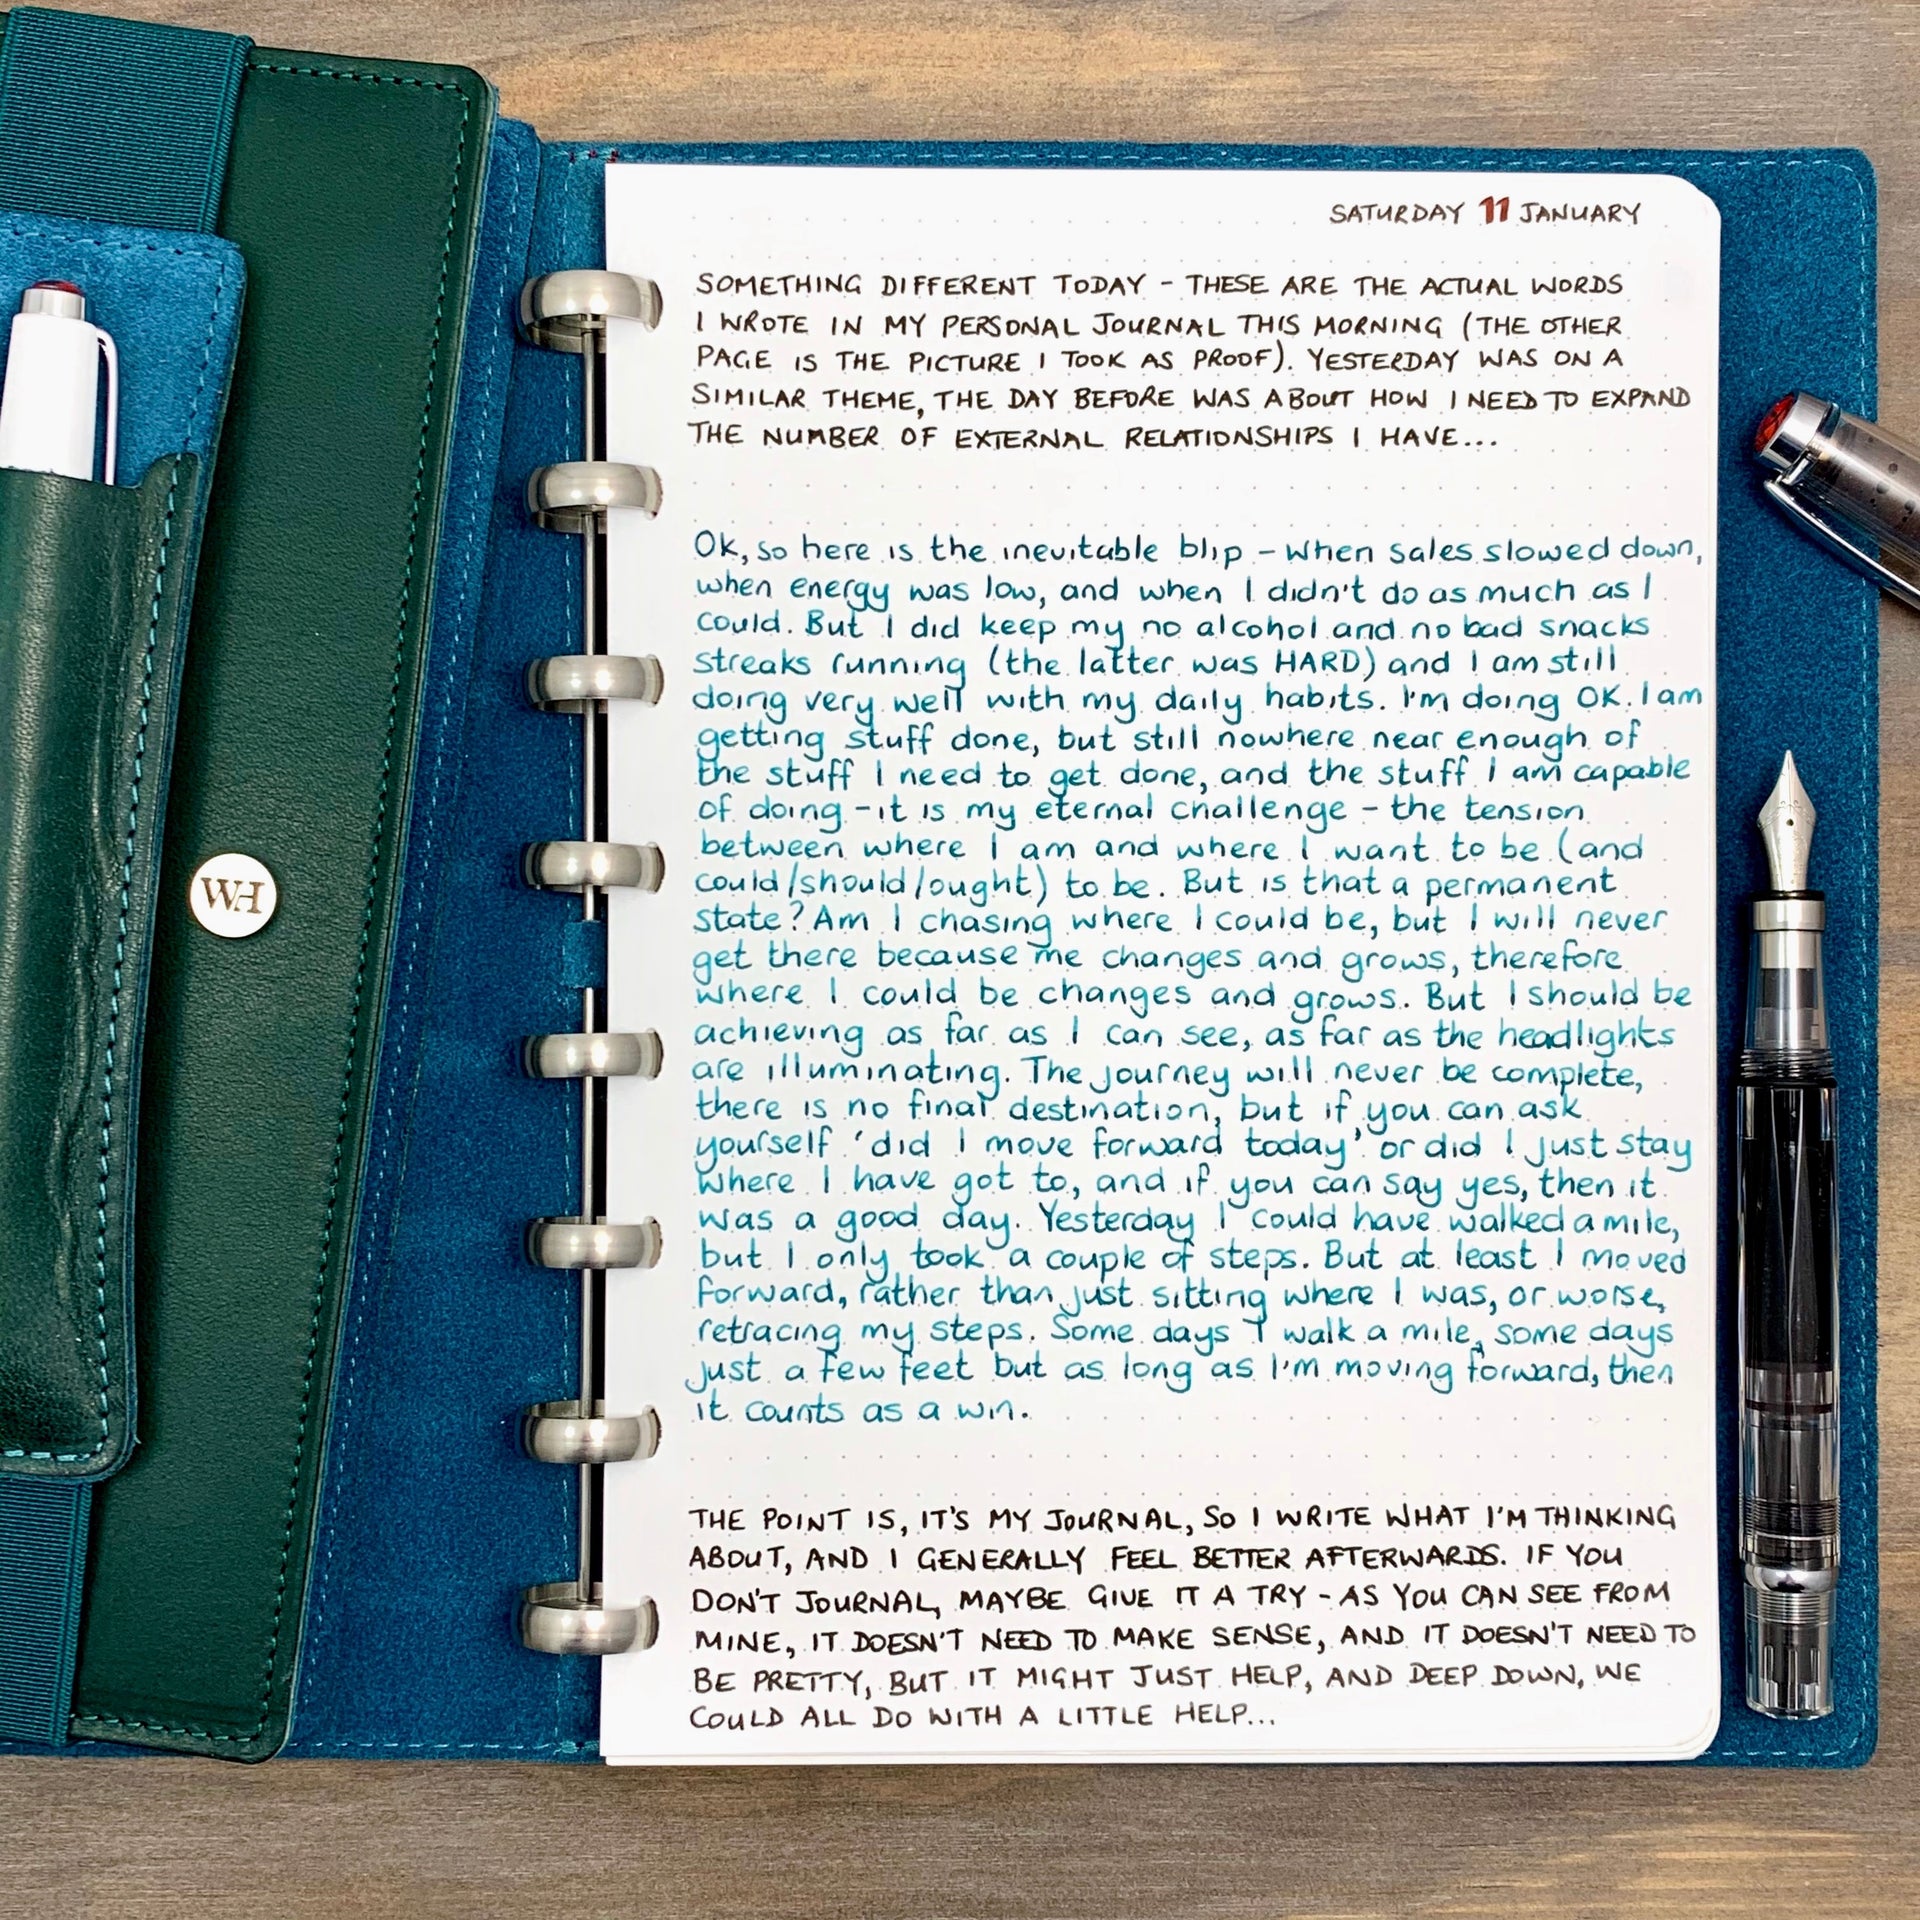 WH
SATURDAY 11 JANUARY
SOMETHING DIFFERENT TODAY - THESE ARE THE ACTUAL WORDS
I WROTE IN MY PERSONAL JOURNAL THIS MORNING (THE OTHER
PAGE IS THE PICTURE I TOOK AS PROOF). YESTERDAY WAS ON A
SIMILAR THEME, THE DAY BEFORE WAS ABOUT HOW I NEED TO EXPAND
THE NUMBER OF EXTERNAL RELATIONSHIPS I HAVE...
Ok, so here is the inevitable blip - when sales slowed down,
when energy was low, and when I didn't do as much as I
could. But I did keep my no alcohol and no bad snacks
streaks running (the latter was HARD) and I am still
doing very well with my daily habits. I'm doing OK. I am
getting stuff done, but still nowhere near enough of
the stuff I need to get done, and the stuff I am capable
of doing - it is my eternal challenge - the tension
between where I am and where I want to be (and
could/should/ought) to be. But is that a permanent
state? Am I chasing where I could be, but I will never
get there because me changes and grows, therefore
where I could be changes and grows. But I should be
achieving as far as I can see, as far as the headlights
are illuminating. The journey will never be complete,
there is no final destination, but if you can ask
yourself 'did I move forward today' or did I just stay
where I have got to, and if you can say yes, then it
was a good day. Yesterday I could have walked a mile,
but I only took a couple of steps. But at least I moved
forward, rather than just sitting where I was, or worse,
retracing my steps. Some days I walk a mile, some days
just a few feet but as long as I'm moving forward, then
it counts as a win.
THE POINT IS, IT'S MY JOURNAL, SO I WRITE WHAT I'M THINKING
ABOUT, AND I GENERALLY FEEL BETTER AFTERWARDS. IF YOU
DON'T JOURNAL, MAYBE GIVE IT A TRY - AS YOU CAN SEE FROM
MINE, IT DOESN'T NEED TO MAKE SENSE, AND IT DOESN'T NEED TO
BE PRETTY, BUT IT MIGHT JUST HELP, AND DEEP DOWN, WE
COULD ALL DO WITH A LITTLE HELP...